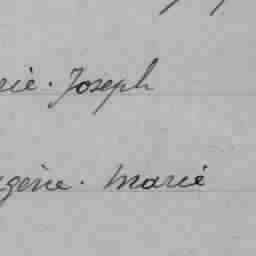 rie. Joseph
gène. Marie